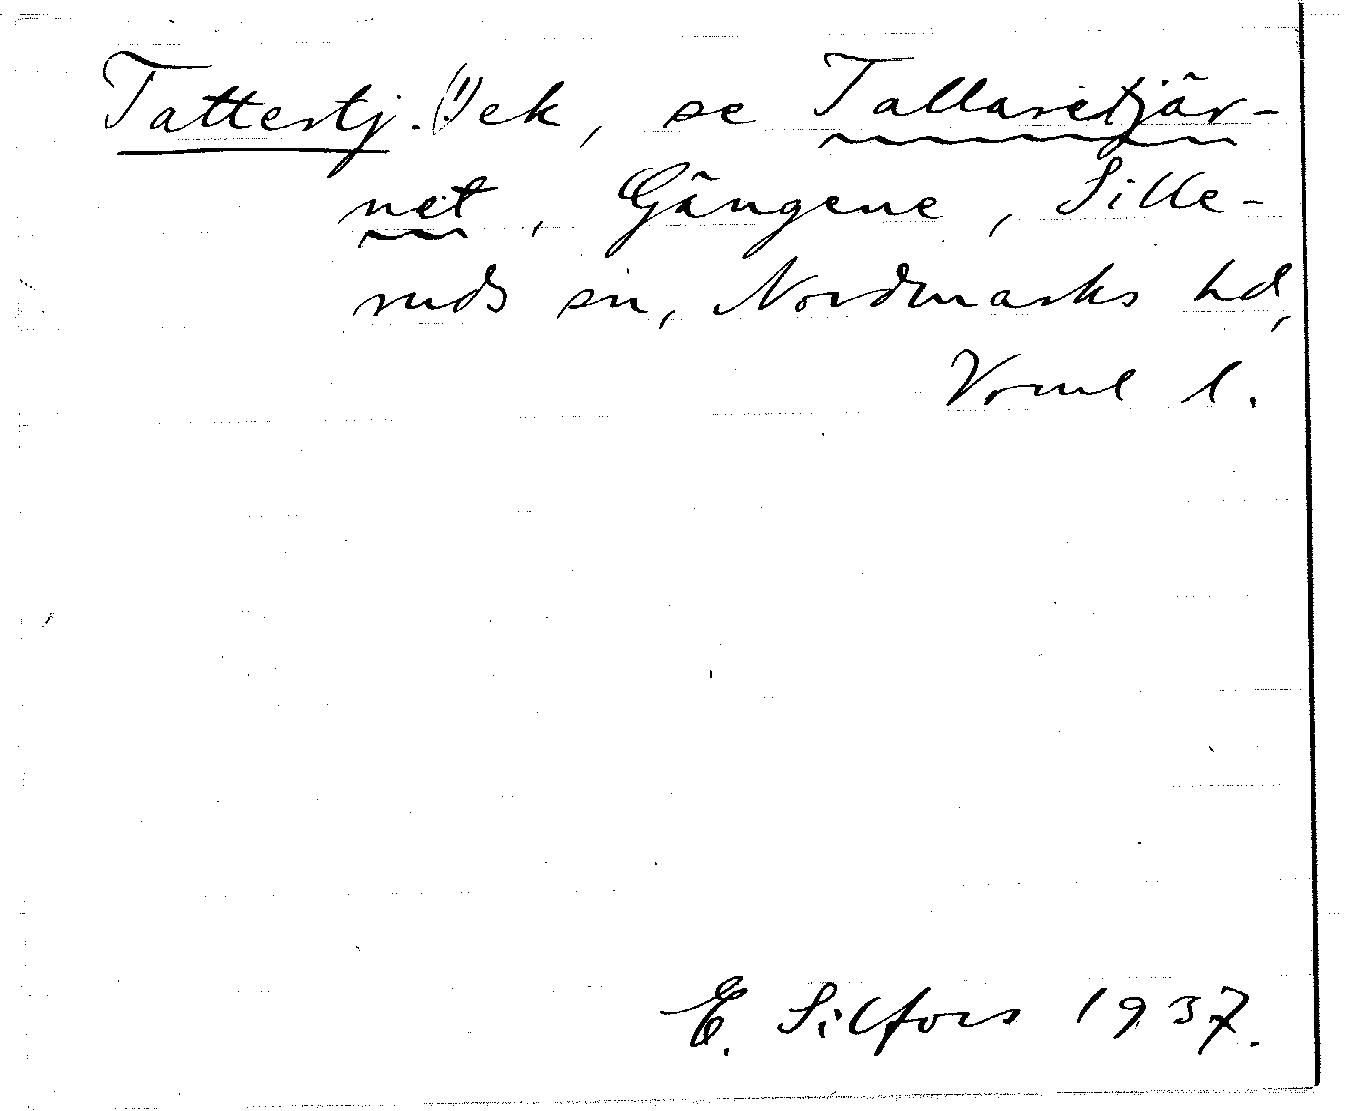 Tattertj. (!) ek, se Tallaretjär-
net, Gängene, Sille-
ruds sn, Nordmarks hd,
Vrml l.
E. Silfors 1937.